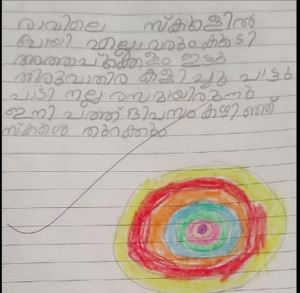 രാവിലെ സ്കൂളിൽ
പോയി എല്ലാവരും കൂടി
അത്തപ്പൂക്കളം ഇട്ടു
തിരുവാതിര കളിച്ചു പാട്ടു
പാടി നല്ല രസമായിരുന്നു
ഇനി പത്ത് ദിവസം കഴിഞ്ഞ്
സ്കൂൾ തുറക്കും